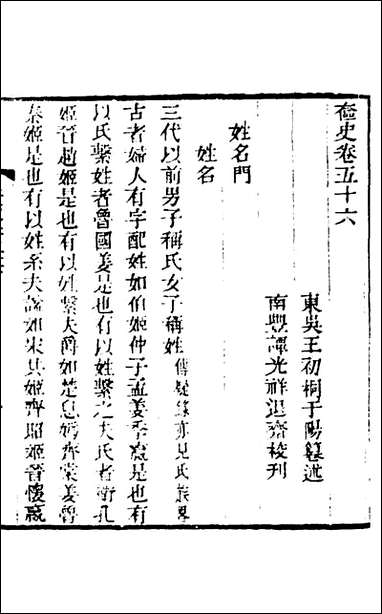 奩史卷五十六
東吳王初桐于陽纂述
南豐譚光祥退齋校刊
姓名門
姓名
三代以前男子稱氏女子稱姓傳疑錄亦見氏族畧
古者婦人有字配姓如伯姬仲子孟姜季嬴是也有
以氏繫姓者魯國姜是也有以姓繫之夫氏者衛孔
姬晉趙姬是也有以姓繫夫爵如楚息嬀齊棠姜魯
秦姬是也有以姓系夫諡如宋共姬齊昭姬晉懷嬴